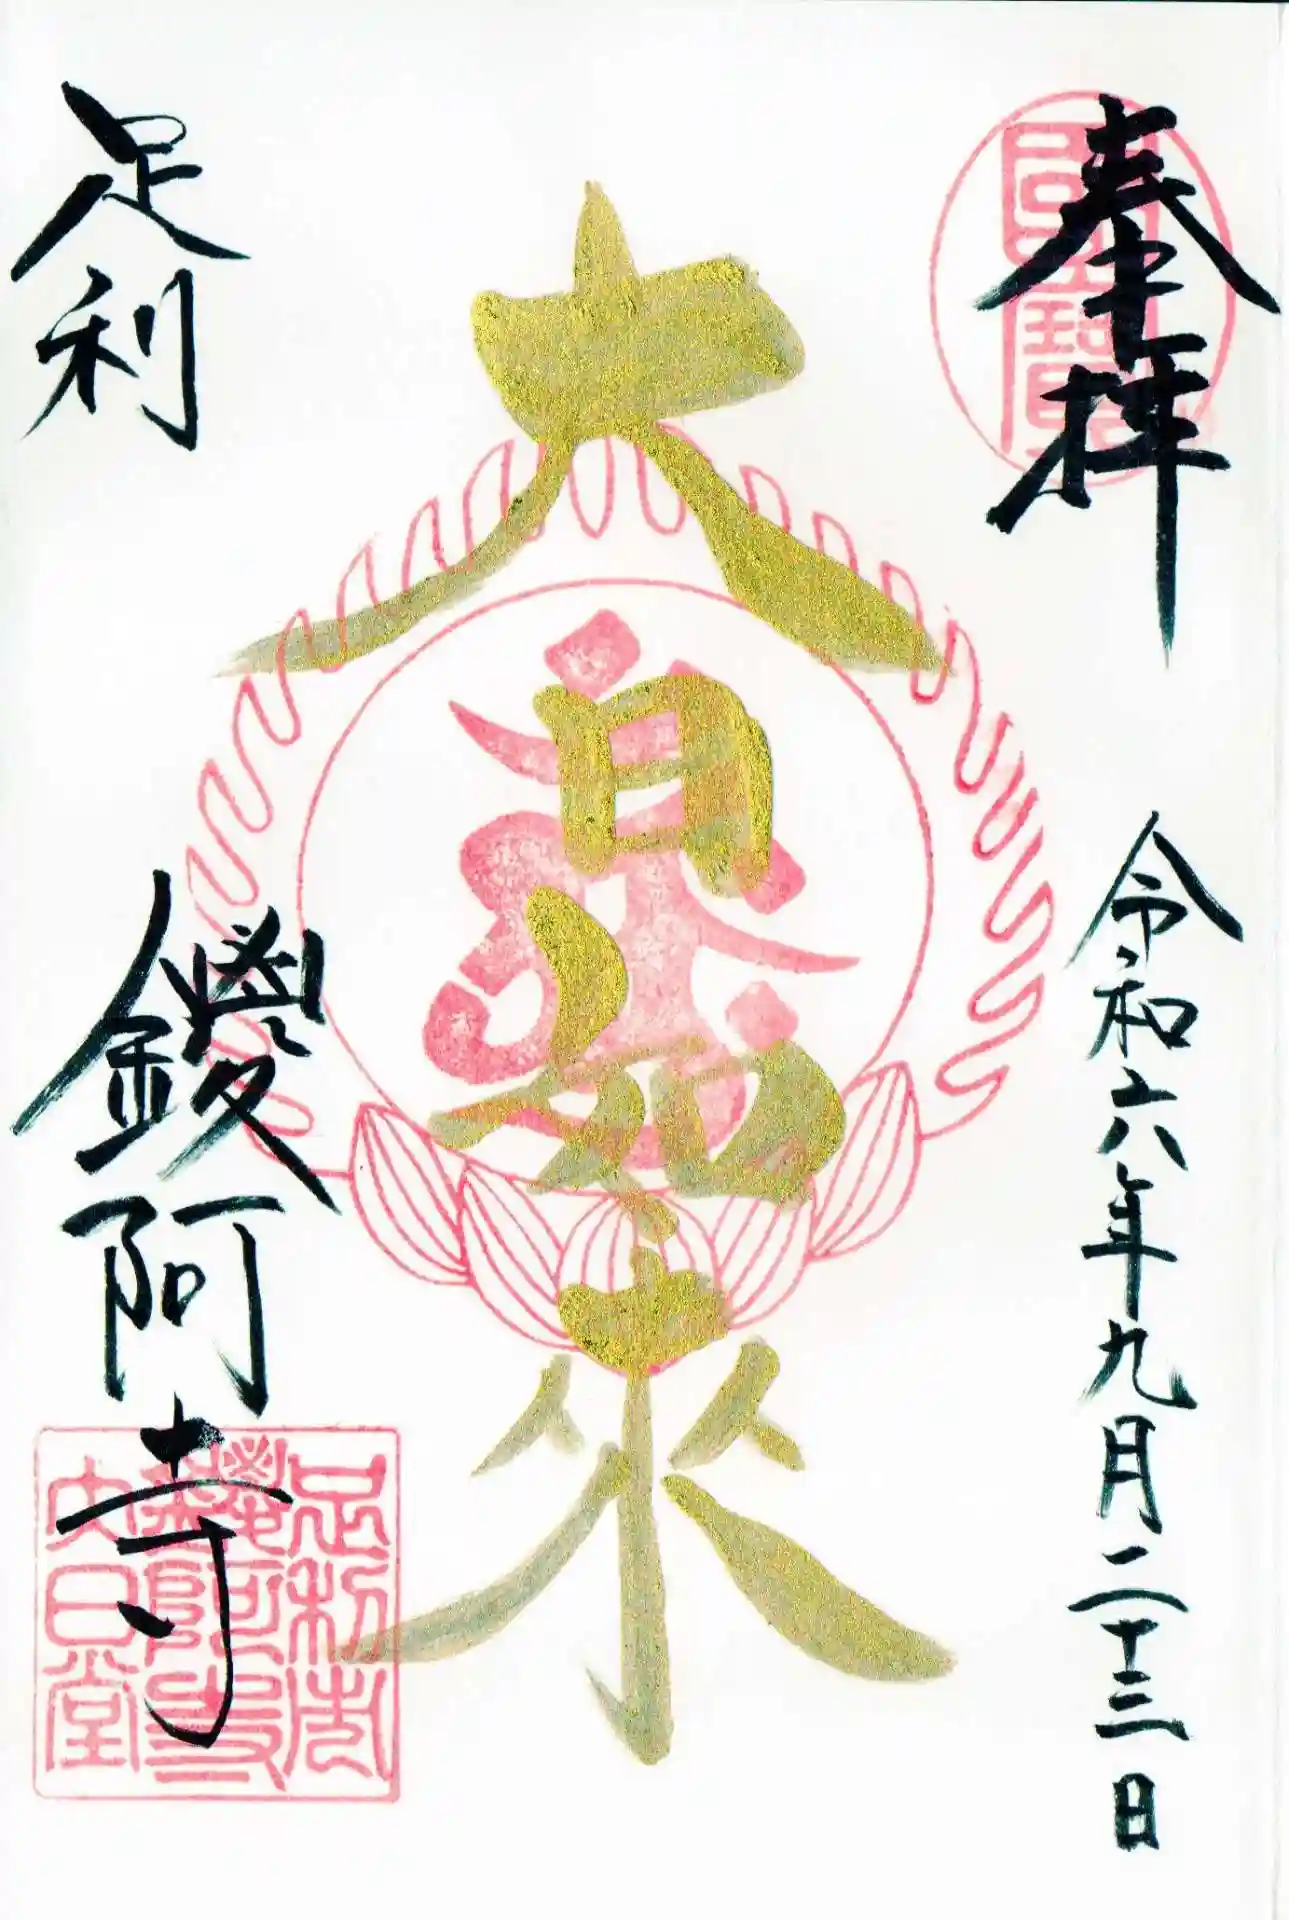 奉拝
國寶
令和六年九月二十三日
大日如来
足利
鑁阿寺
足利市
鑁阿寺
大日堂